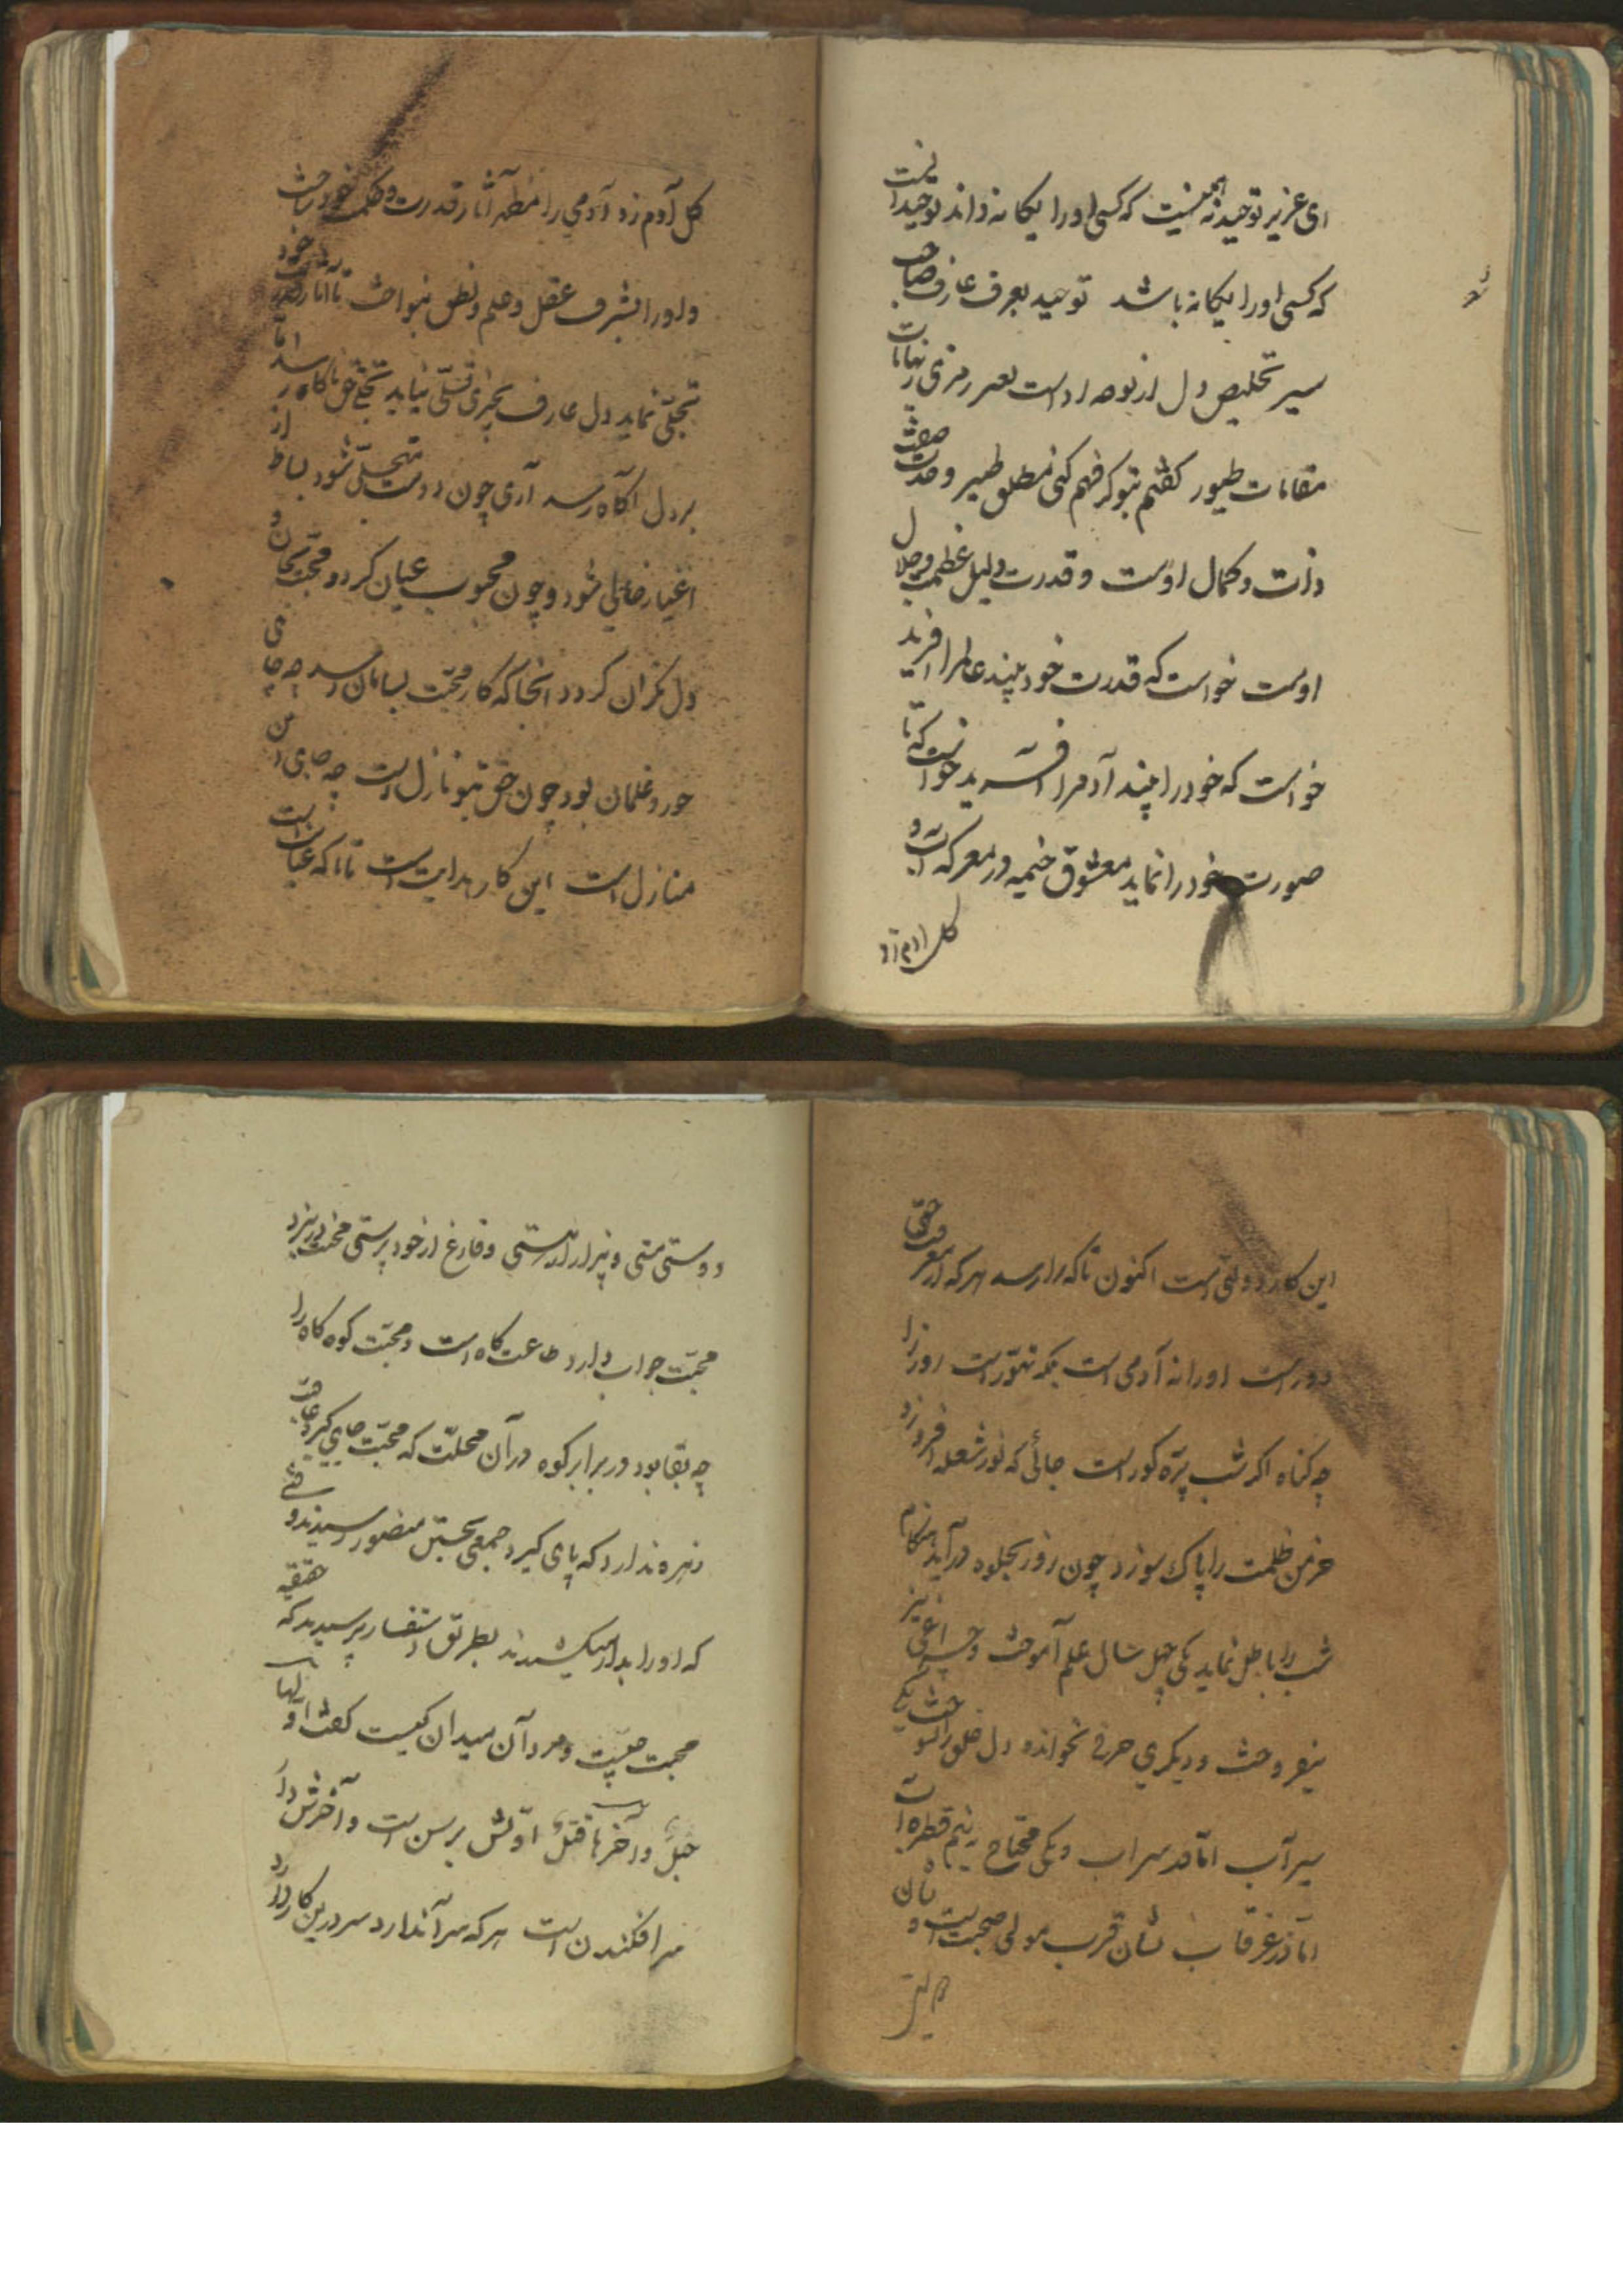 ای عزیز توحید نه همینست که کسی او را یکانه داند توحید اینست
که کسی او را یکانه باشد توحید بعرف عارف صاحب
سیر تخلیص دل از توجه اوست بغیر رمزی ز نهایات
مقامات طیور کفتم بتو کر فهم کنی منطق طیر وحدت صفت
ذات و کمال اوست و قدرت دلیل عظمت و جلال
اوست خواست که قدرت خود بیند عالم را افرید
خواست که خود را بیند آدم را افرید خواست که تا
صورت خود را نماید معشوق خیمه در معرکه آب و
کل ادم زد
کل آدم زد و آدمی را مظهر آثار قدرت و حکمت خود ساخت
و او را بشرف عقل و علم و نطق بنواخت تا آثار قدرت خود
تجلی نماید دل عارف بچیزی تسلی نیابد تجلی حق ناکاه رسد اما
بر دل آکاه رسد آری چون دوست متجلی شود بساط از
اغیار خالی شود و چون محبوب عیان کردد محبت بجان و
دل نکران کردد انجا که کار محبت بسامان رسد چه جای
حور و غلمان بود چون حق بتو نازل است چه جای این
منازل است این کار هدایت است تا که عنایت است
این کار دولتی است اکنون تا که را رسد هر که از معرفت حق
دور است او را نه آدمی است بلکه ستور است روز را
چه کناه اکر شب پره کور است جائی که نور شعله افروزد
خرمن ظلمت را پاک سوزد چون روز بجلوه درآید هنکام
شب را باطل نماید یکی چهل سال علم آموخت و چراغی نیز
نیفروخت و دیکری حرفی نخواند و دل خلق را سوخت یکی
سیر آب اما قد سراب و یکی محتاج نیم قطره آب
اما در غرقاب نشان قرب مولی صحبت است و
دوستی مستی و بیزار از هستی و فارغ از خود پرستی محنت در نبرد
محبت جواب دارد طاعت کاه است و محبت کوه کاه را
چه بقا بود در برابر کوه در آن محلت که محبت جای کیرد عافیت
زهره ندارد که پای کیرد جمعی بحسین منصور رسیدند وقتی
که او را بدار میکشیدند بطریق استفسار پرسیدند که حقیقة
محبت چیست و مرد آن میدان کیست کفت اولها
حبل و آخرها قتل اولش برسن است و آخرش دار
سرافکندن است هر که سر آن دارد سر درین کار دارد